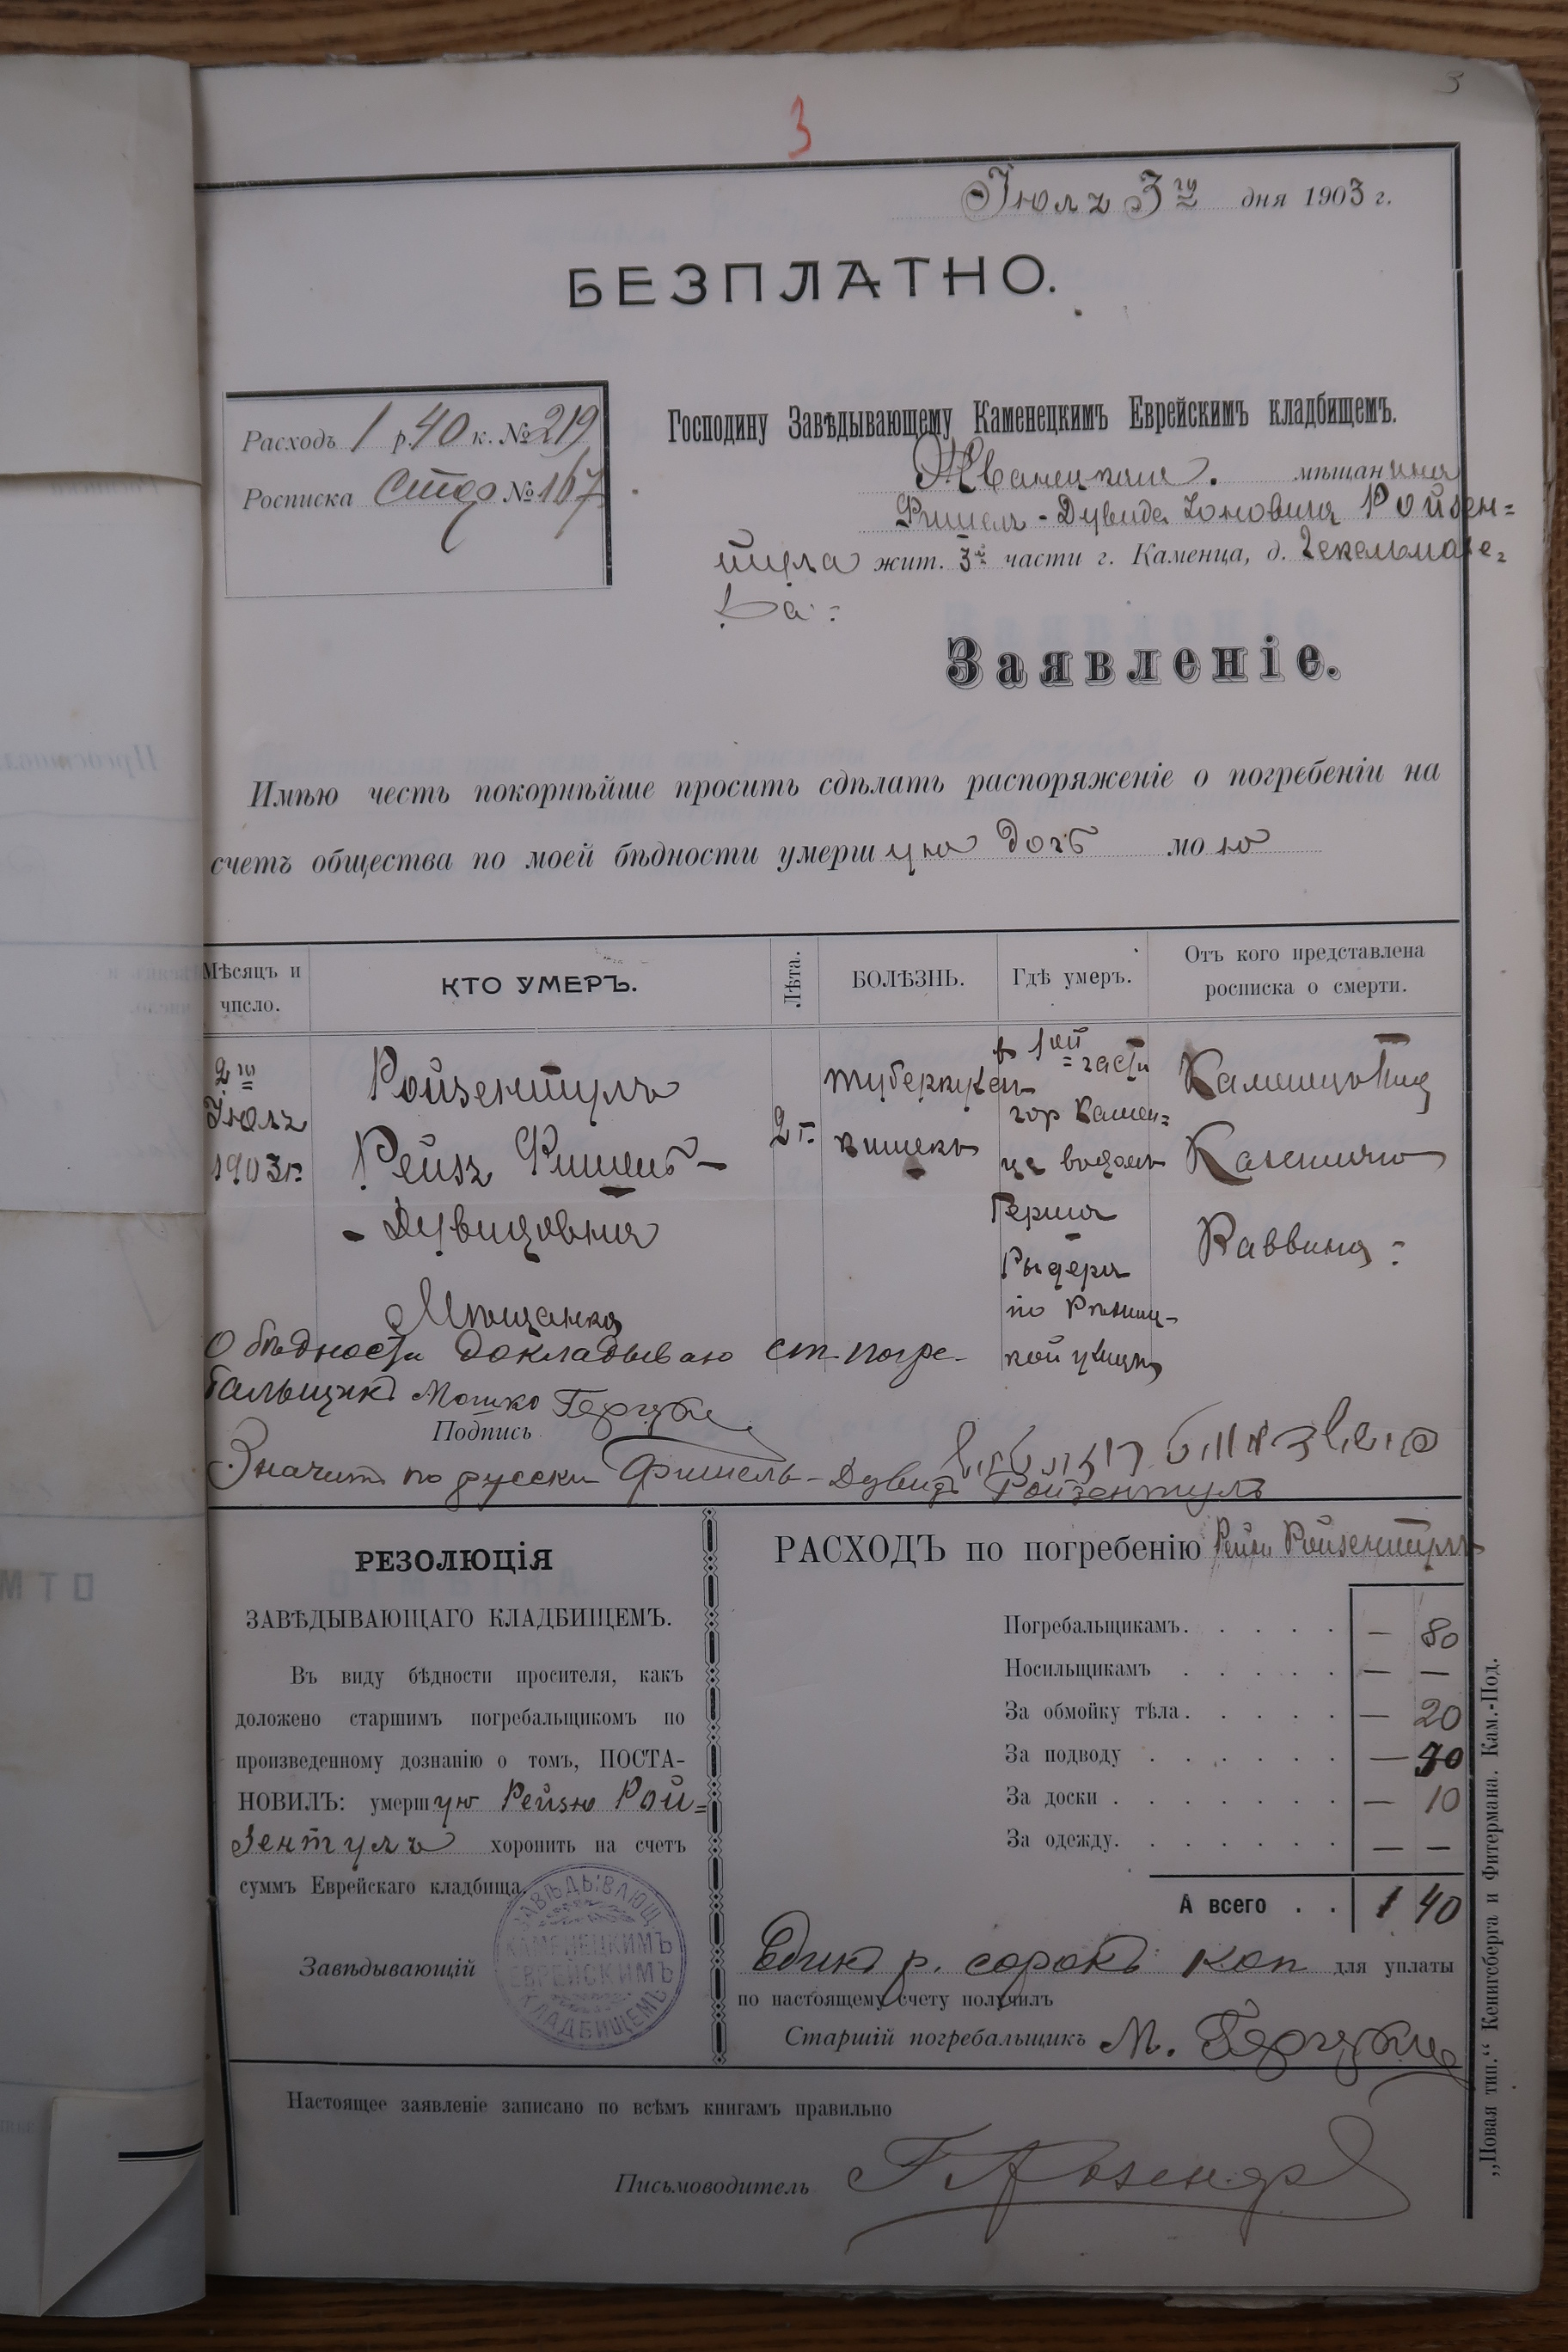 3
3
Іюля 3го дня 1903 г.
БЕЗПЛАТНО.
Расходъ 1 р. 40 к. № 219
Росписка стар № 167
Господину Завѣдывающему Каменецкимъ Еврейскимъ кладбищемъ.
Жванецкаго мѣщанина
Фишель-Дувида Іоновича Ройзен=
тула жит. 3й части г. Каменца, д. Чекельмаке=
ра
Заявленіе.
Имѣю честь покорнѣйше просить сдѣлать распоряженіе о погребеніи на
счетъ общества по моей бѣдности умершую дочь мою
Мѣсяцъ и число. КТО УМЕРЪ. Лѣта. БОЛѢЗНЬ. Гдѣ умеръ. Отъ кого представлена росписка о смерти.
2го Іюля 1903 г.
Ройзентулъ
Рейзя Фишель-
-Дувидовна
Мѣщанка
2 г.
туберкулезъ
кишекъ
в 1ой части
гор Камен=
ца
Герша
Рыдера
по
кой улицѣ
Каменецъ Под
Казеннаго
Раввина
О бѣдности докладываю ст. погре-
бальщикъ Мошко
Подпись
Значитъ по русски Фишель-Дувидъ Ройзентулъ
РЕЗОЛЮЦІЯ
ЗАВѢДЫВАЮЩАГО КЛАДБИЩЕМЪ.
Въ виду бѣдности просителя, какъ
доложено старшимъ погребальщикомъ по
произведенному дознанію о томъ, ПОСТА-
НОВИЛЪ: умершую Рейзю Рой=
зентулъ хоронить на счетъ
суммъ Еврейскаго кладбища.
Завѣдывающій
ЗАВѢДЫВАЮЩ.
КАМЕНЕЦКИМЪ
ЕВРЕЙСКИМЪ
КЛАДБИЩЕМЪ
РАСХОДЪ по погребенію Рейзи Ройзентулъ
Погребальщикамъ. — 80
Носильщикамъ — —
За обмойку тѣла. — 20
За подводу — 30
За доски — 10
За одежду. — —
А всего 1 40
Одинъ р. сорокъ коп для уплаты
по настоящему счету получилъ
Старшій погребальщикъ М.
Настоящее заявленіе записано по всѣмъ книгамъ правильно
Письмоводитель
„Новая тип.“ Кенигсберга и Фитермана. Кам.-Под.